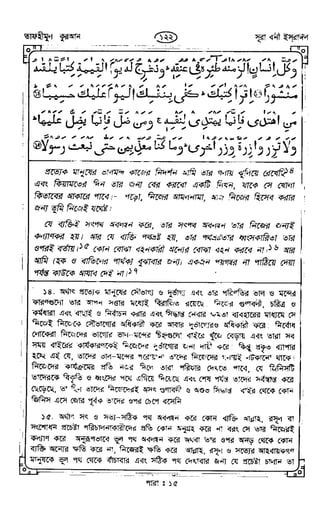 তাফহীমুল কুরআন
১২২
সূরা বনী ইসরাঈল
وَكُلَّ إِنْسَانٍ أَلْزَمْنٰهُ طٰٓئِرَهٗ فِيْ عُنُقِهٖ ؕ وَنُخْرِجُ لَهٗ يَوْمَ الْقِيٰمَةِ كِتٰبًا يَّلْقٰىهُ
مَنْشُوْرًا ۞ اِقْرَأْ كِتٰبَكَ ؕ كَفٰى بِنَفْسِكَ الْيَوْمَ عَلَيْكَ حَسِيْبًا ۞
مَنِ اهْتَدٰى فَاِنَّمَا يَهْتَدِيْ لِنَفْسِهٖ ۚ وَمَنْ ضَلَّ فَاِنَّمَا يَضِلُّ عَلَيْهَا ؕ
وَلَا تَزِرُ وَازِرَةٌ وِّزْرَ اُخْرٰى ؕ وَمَا كُنَّا مُعَذِّبِيْنَ حَتّٰى نَبْعَثَ رَسُوْلًا ۞
প্রত্যেক মানুষের ভালমন্দ কাজের নিদর্শন আমি তার গলায় ঝুলিয়ে রেখেছি১৪
এবং কিয়ামতের দিন তার জন্য বের করবো একটি লিখন, যাকে সে খোলা
কিতাবের আকারে পাবে।- পড়ো, নিজের আমলনামা, আজ নিজের হিসেব করার
জন্য তুমি নিজেই যথেষ্ট।
যে ব্যক্তিই সৎপথ অবলম্বন করে, তার সৎপথ অবলম্বন তার নিজের জন্যই
কল্যাণকর হয়। আর যে ব্যক্তি পথভ্রষ্ট হয়, তার পথভ্রষ্টতার ধ্বংসকারিতা তার
ওপরই বর্তায়।১৫ কোন বোঝা বহনকারী অন্যের বোঝা বহন করবে না।১৬ আর
আমি (হক ও বাতিলের পার্থক্য বুঝাবার জন্য) একজন পয়গম্বর না পাঠিয়ে দেয়া
পর্যন্ত কাউকে আযাব দেই না।১৭
১৪. অর্থাৎ প্রত্যেক মানুষের সৌভাগ্য ও দুর্ভাগ্য এবং তার পরিণতির ভাল ও মন্দের
কারণগুলো তার আপন সত্তার মধ্যেই বিরাজিত রয়েছে। নিজের গুণাবলী, চরিত্র ও
কর্মধারা এবং বাছাই ও নির্বাচন করার এবং সিদ্ধান্ত নেবার ক্ষমতা ব্যবহারের মাধ্যমে সে
নিজেই নিজেকে সৌভাগ্যের অধিকারী করে আবার দুর্ভাগ্যেরও অধিকারী করে। নির্বোধ
লোকেরা নিজেদের ভাগ্যের ভাল-মন্দের চিহ্নগুলো বাইরে খুঁজে বেড়ায় এবং তারা সব
সময় বাইরের কার্যকারণকেই নিজেদের দুর্ভাগ্যের জন্য দায়ী করে। কিন্তু প্রকৃত ব্যাপার
১৫. অর্থাৎ সৎ ও সত্য-সঠিক পথ অবলম্বন করে কোন ব্যক্তি আল্লাহ, রসূল বা
সংশোধন প্রচেষ্টা পরিচালনাকারীদের প্রতি কোন অনুগ্রহ করে না বরং সে তার নিজেরই
কল্যাণ করে। অনুরূপভাবে ভুল পথ অবলম্বন করে অথবা তার ওপর অনড় থেকে কোন
ব্যক্তি অন্যের ক্ষতি করে না, নিজেরই ক্ষতি করে। আল্লাহ, রসূল ও সত্যের আহবায়কগণ
মানুষকে ভুল পথ থেকে বাঁচাবার এবং সঠিক পথ দেখাবার জন্য যে প্রচেষ্টা চালান তা
পারা : ১৫